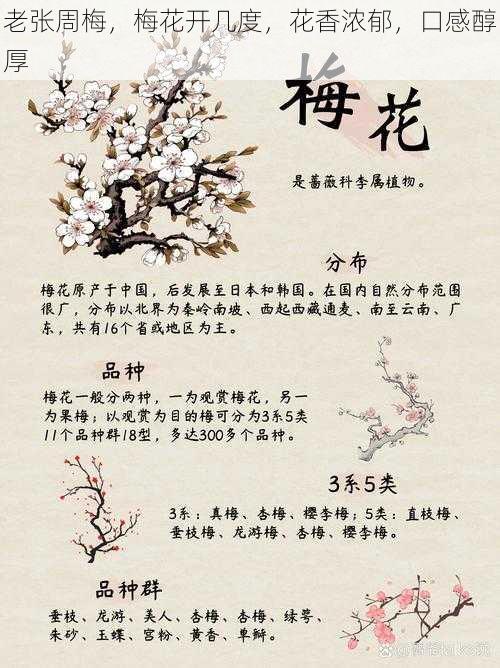 老张周梅，梅花开几度，花香浓郁，口感醇
厚
梅花
是蔷薇科李属植物。
分布
梅花原产于中国，后发展至日本和韩国。在国内自然分布范围
很广，分布以北界为秦岭南坡、西起西藏通麦、南至云南、广
东，共有16个省或地区为主。
品种
梅花一般分两种，一为观赏梅花，另一
为果梅；以观赏为目的梅可分为3系5类
11个品种群18型，多达300多个品种。
3系5类
3系：真梅、杏梅、樱李梅；5类：直枝梅、
垂枝梅、龙游梅、杏梅、樱李梅。
品种群
垂枝、龙游、美人、杏梅、杏梅、绿萼、
朱砂、玉蝶、宫粉、黄香、单瓣。